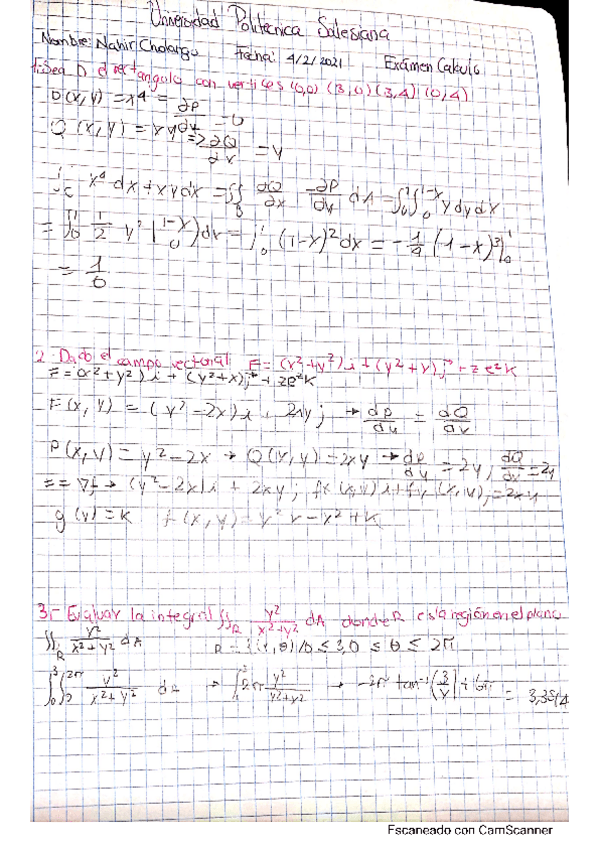 Universidad Politécnica Salesiana
Nombre: Nahir Cholango Fecha: 4/2/2021 Exámen Calculo
1. Sea D el rectangulo con vertices (0,0) (3,0) (3,4) (0,4)
P(x,y) = x⁴ = ∂P/∂y = 0
Q(x,y) = xy => ∂Q/∂x = y
∫c x⁴dx + xydx = ∫∫ ∂Q/∂x - ∂P/∂y dA = ∫₀¹∫₀^(1-x) y dy dx
= ∫₀¹ 1/2 y² |₀^(1-x) dx = ∫₀¹ (1-x)² dx = -1/9 (1-x)³|₀¹
= 1/6
2. Dado el campo vectorial F = (x²+y²)i + (y²+x)j + z e² K
F = (x²+y²)i + (y²+x)j + ze²K
F(x,y) = (y²-2x)i, 2xy j → dp/dy = dQ/dx
P(x,y) = y²-2x → Q(x,y) = 2xy → dp/dy = 2y, dQ/dx = 2y
= ∇f → (y²-2x)i + 2xy j fx(x,y)i + fy(x,y)j = 2xy
g(y) = K f(x,y) = y²x - x² + K
3.- Evaluar la integral ∫∫R y²/x²+y² dA donde R es la región en el plano
∫∫R y²/x²+y² dA 0 ≤ 3, 0 ≤ θ ≤ 2π
∫₀³∫ 2π y²/x²+y² dA → ∫ 2π y²/y²+y² → -2π tan⁻¹(3/y)
Escaneado con CamScanner